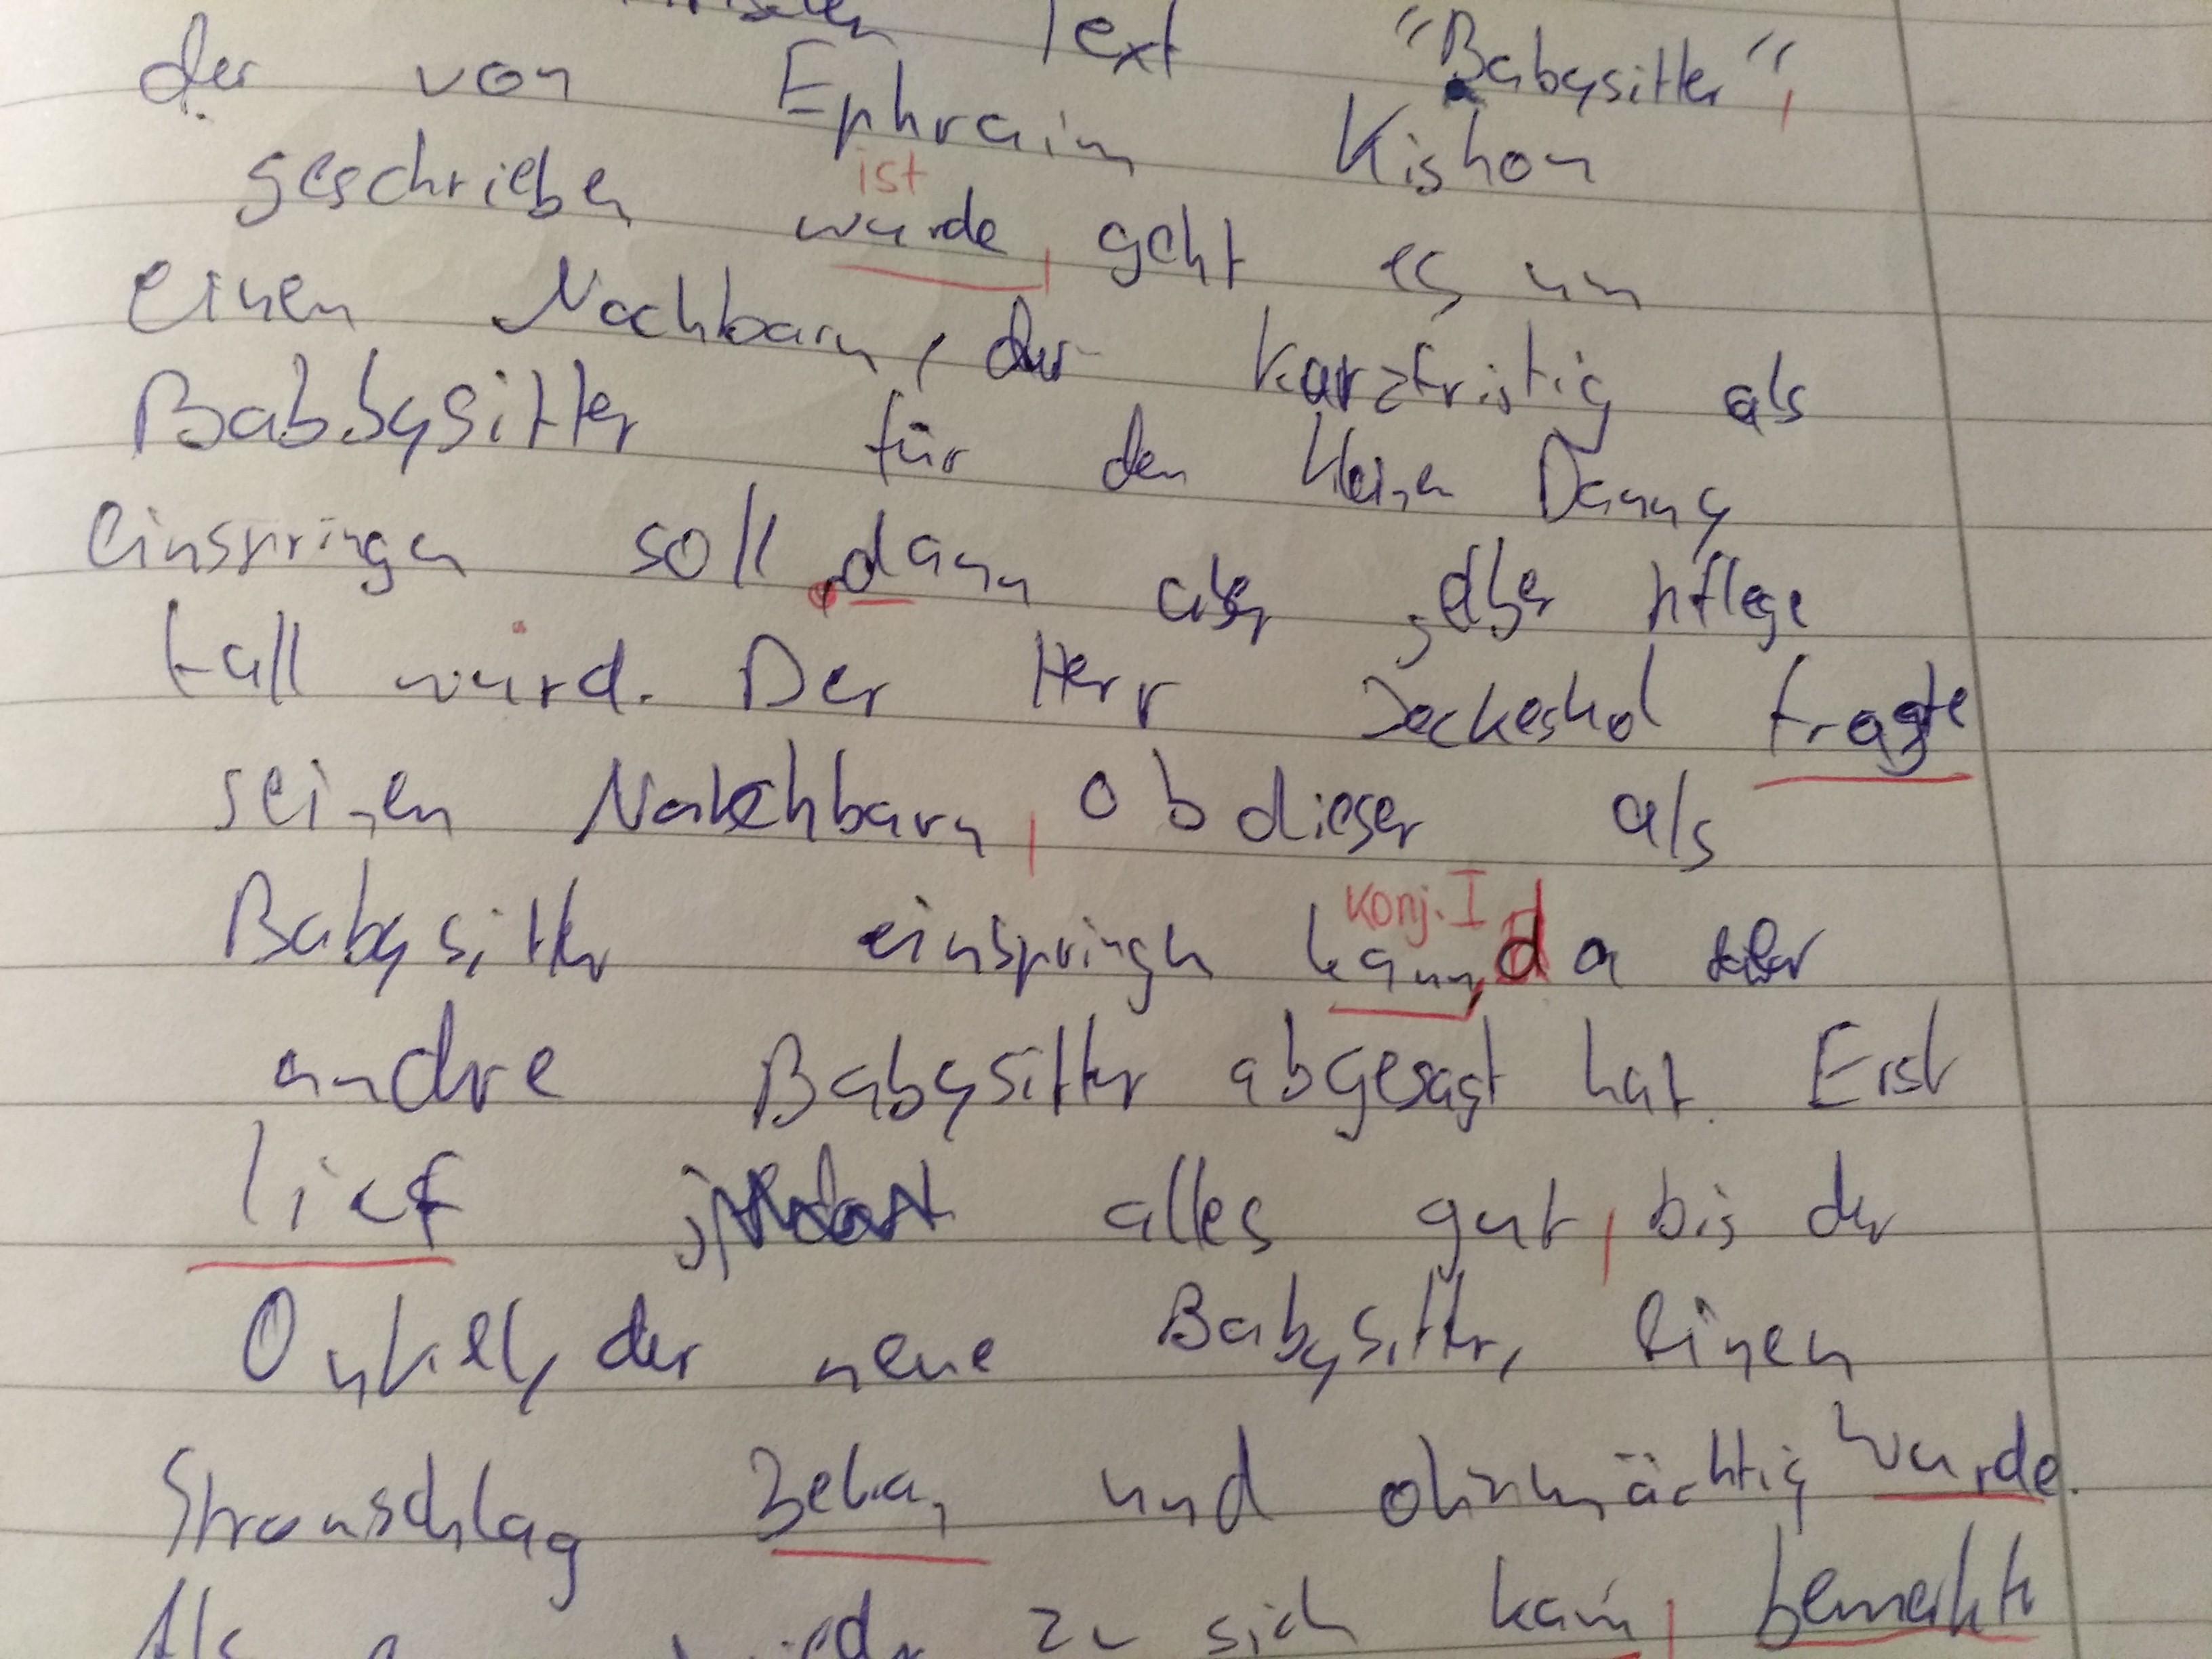 Text "Babysitter",
der von Ephraim Kishon
ist
geschrieben wurde, geht es um
einen Nachbarn, der kurzfristig als
Babbysitter für den kleinen Danny
einspringen soll, dann aber selber pflege
fall wird. Der Herr fragte
seinen Nachbarn, ob dieser als
Konj. I
Babysitter einspringen kann, da der
andre Babysitter abgesagt hat. Erst
lief alles gut, bis der
Onkel, der neue Babysitter, einen
Stromschlag bekam und ohnmächtig wurde.
Als wieder zu sich kam, bemerkte